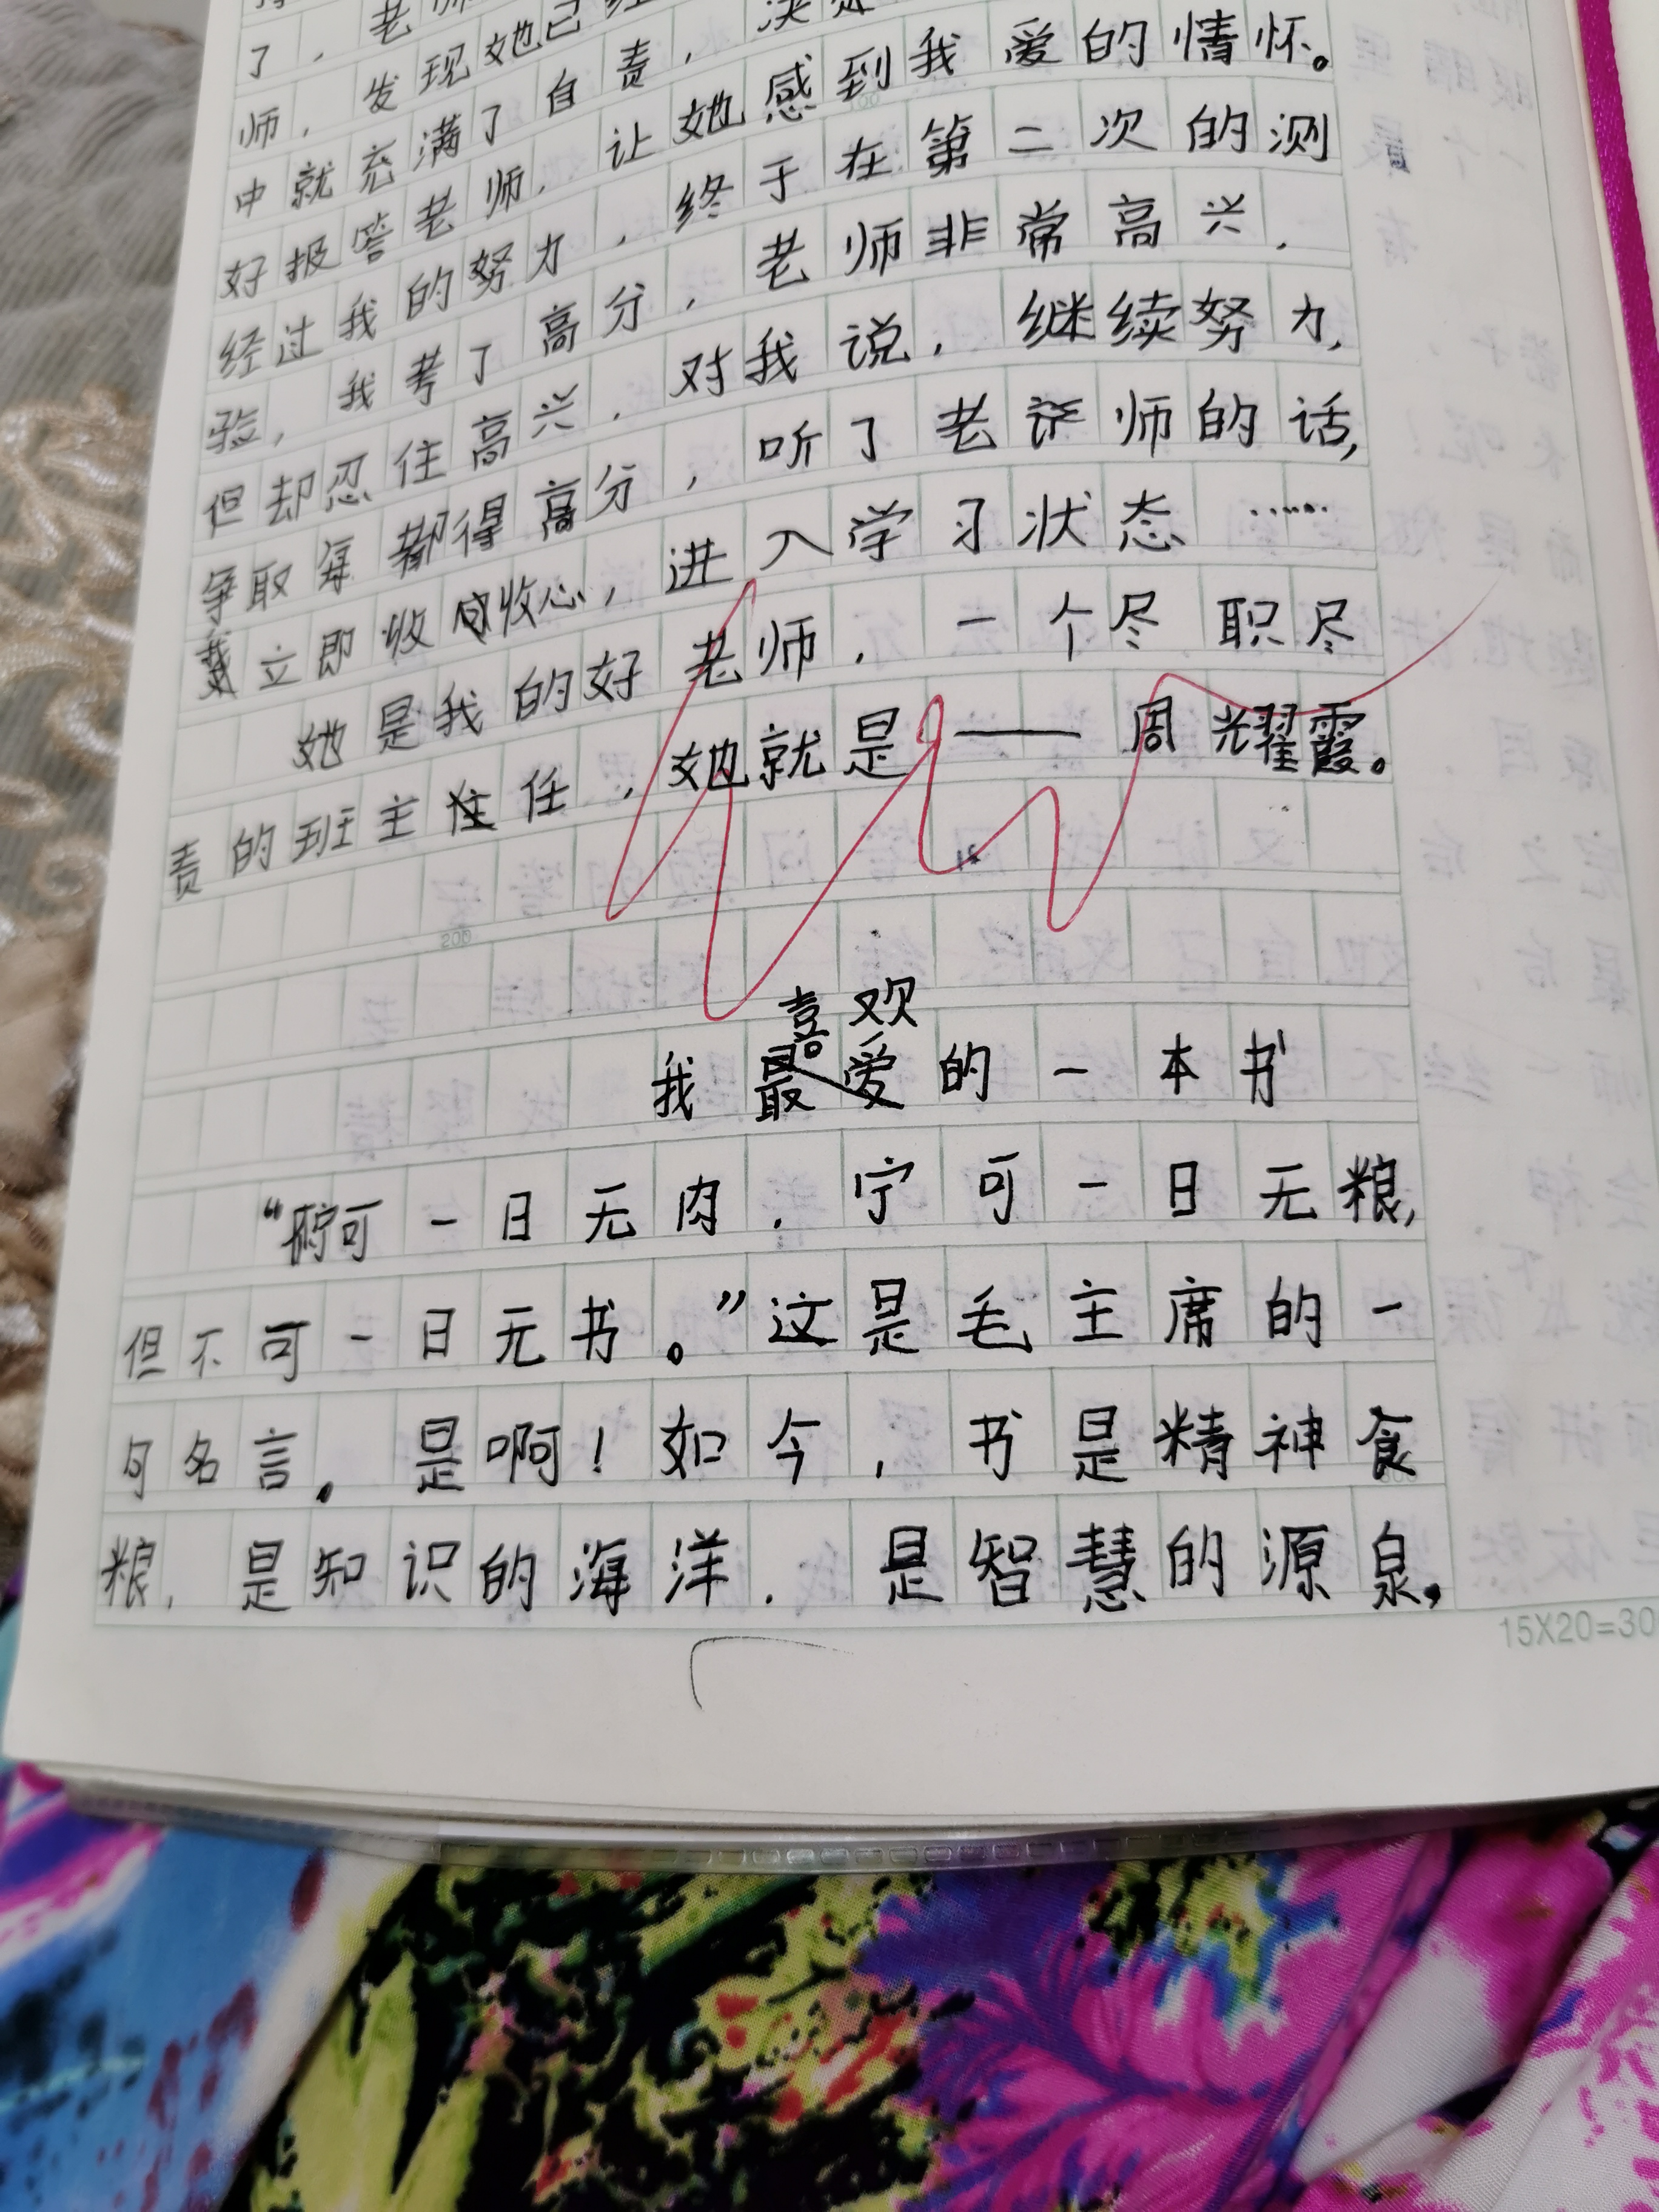 了，老师
师，发现她已经
中就充满了自责，决定
好报答老师，让她感到我爱的情怀。
经过我的努力，终于在第二次的测
验，我考了高分，老师非常高兴，
但却忍住高兴，对我说，继续努力，
争取每都得高分，听了老师的话，
我立即收收心，进入学习状态……
她是我的好老师，一个尽职尽
责的班主任，她就是——周耀霞。
200
喜欢
我最爱的一本书
“宁可一日无肉，宁可一日无粮，
但不可一日无书。”这是毛主席的一
句名言。是啊！如今，书是精神食
粮，是知识的海洋，是智慧的源泉，
15X20=30